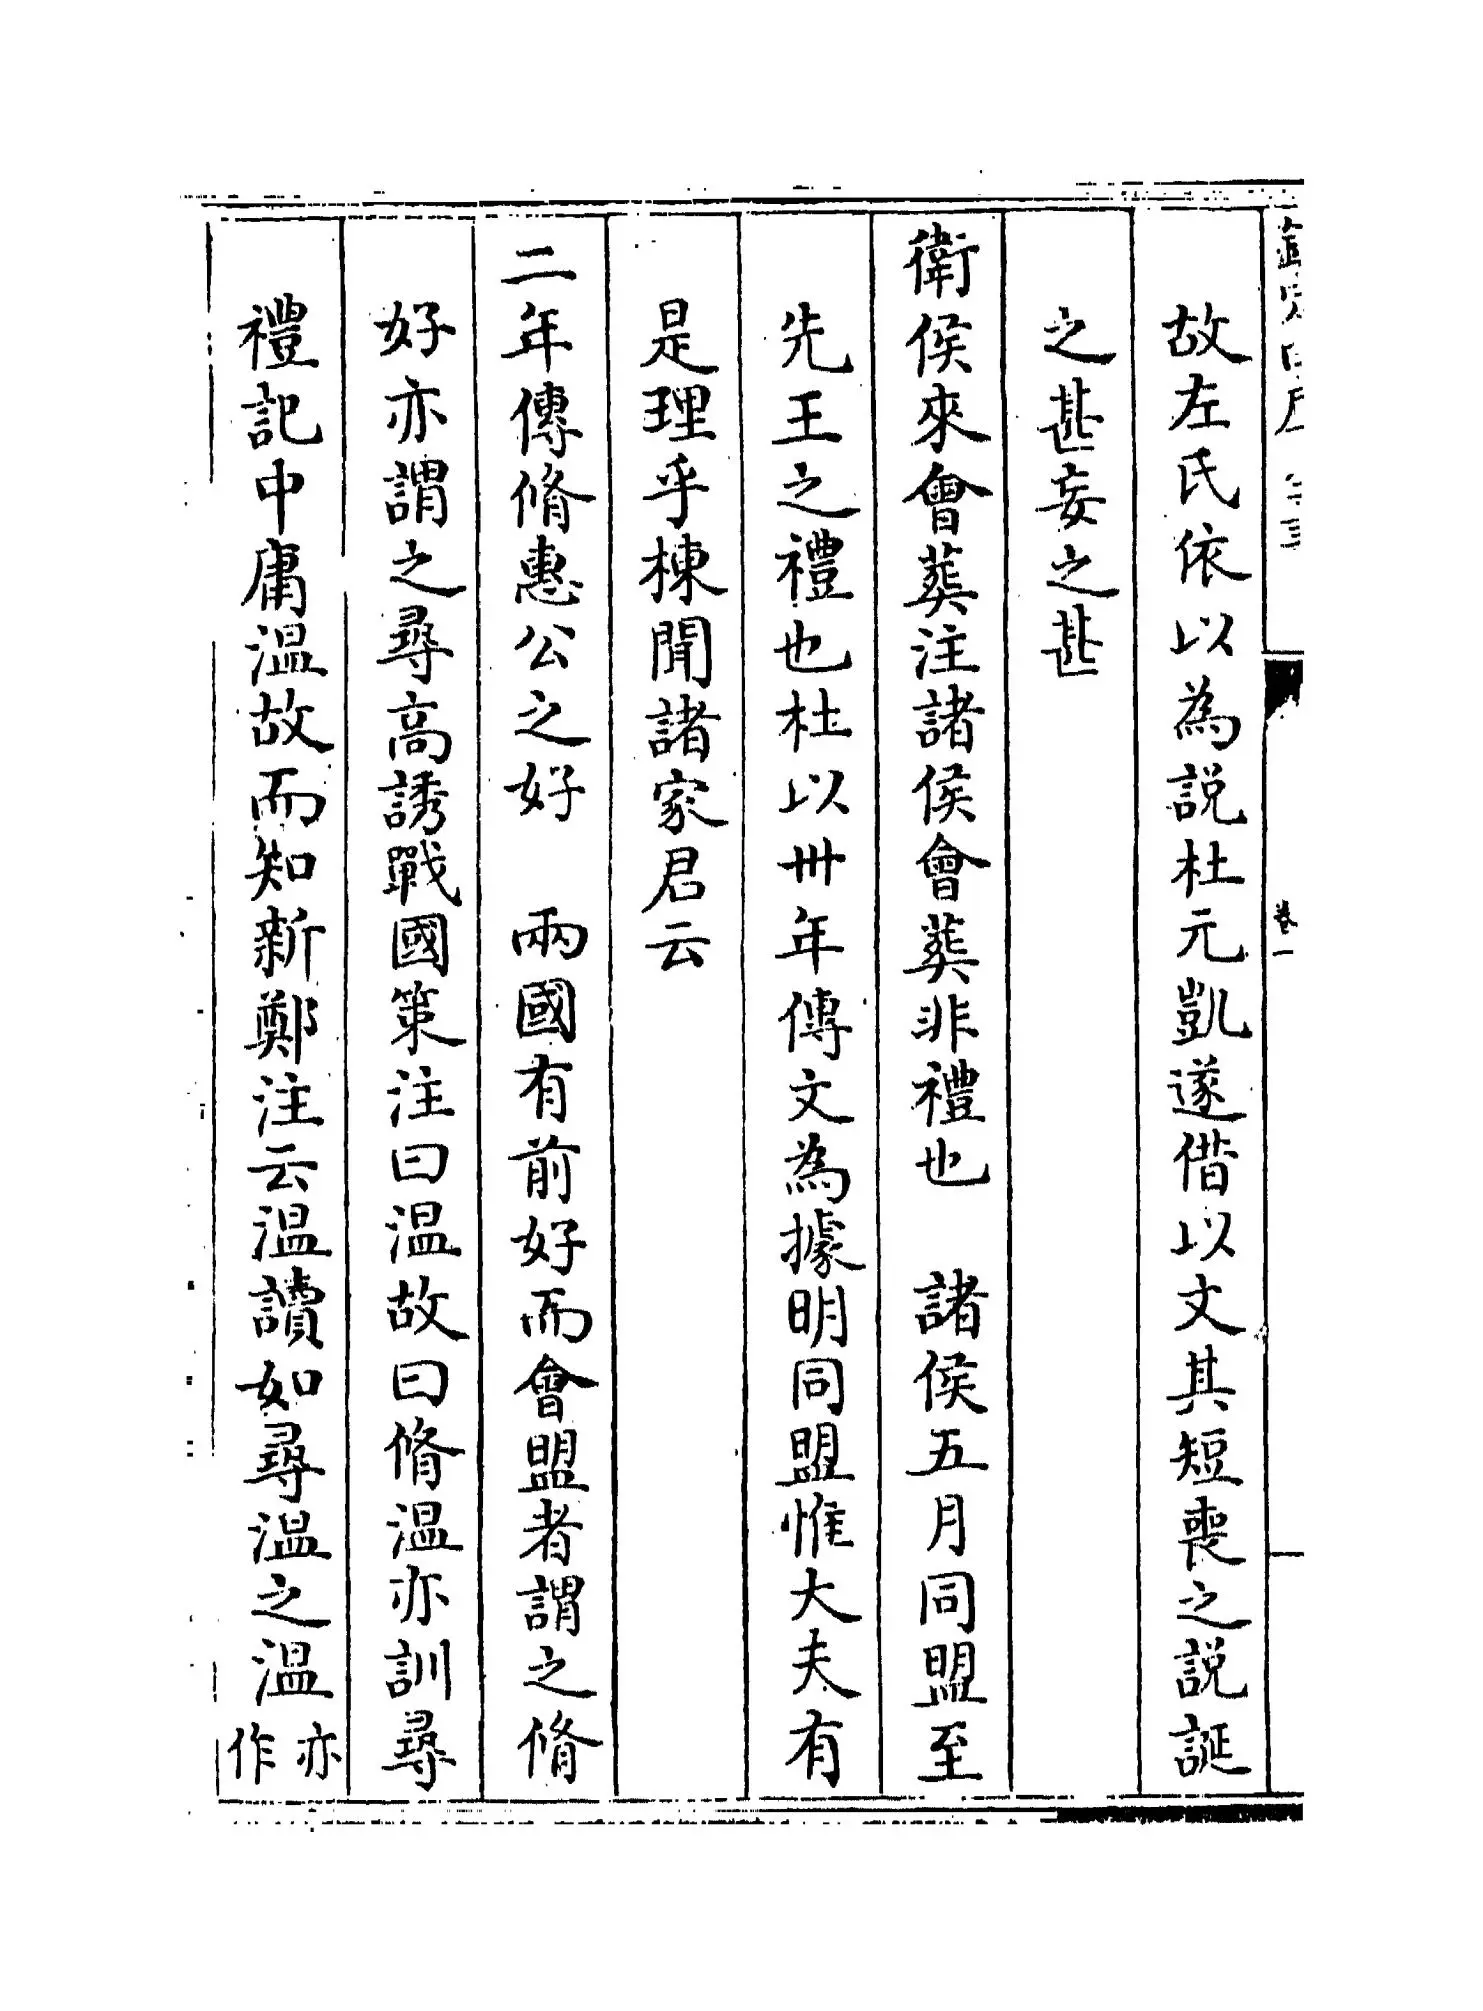 故左氏依以為説杜元凱遂借以文其短喪之説誕
之甚妄之甚
衛侯來會葬注諸侯會葬非禮也　諸侯五月同盟至
先王之禮也杜以卅年傳文為據明同盟惟大夫有
是理乎棟聞諸家君云
二年傳脩惠公之好　兩國有前好而會盟者謂之脩
好亦謂之尋高誘戰國策注曰温故曰脩温亦訓尋
禮記中庸温故而知新鄭注云温讀如尋温之温亦
作
卷一